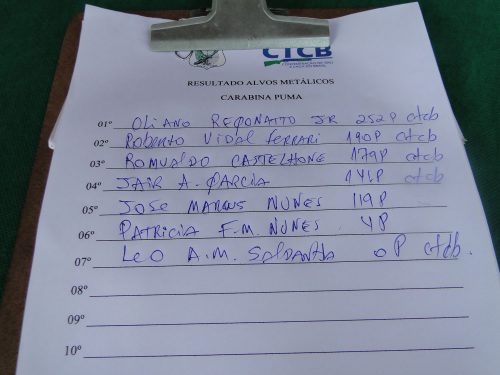 CTCB
RESULTADO ALVOS METÁLICOS
CARABINA PUMA
01º OLIANO REGONATTO JR 252P ctcb
02º Roberto Vidal Ferrari 190P ctcb
03º ROMUALDO CASTELHONE 179P ctcb
04º JAIR A. GARCIA 141P ctcb
05º JOSE MARCUS NUNES 119P
06º PATRICIA F.M. NUNES 4P
07º LEO A.M. SALDANHA 0P ctcb.
08º
09º
10º